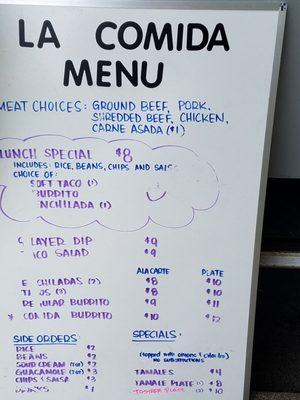 LA COMIDA
MENU
MEAT CHOICES: GROUND BEEF, PORK,
SHREDDED BEEF, CHICKEN,
CARNE ASADA ($1)
LUNCH SPECIAL $8
INCLUDES: RICE, BEANS, CHIPS AND SALSA
CHOICE OF:
SOFT TACO (1)
BURRITO
ENCHILADA (1)
LAYER DIP $9
CO SALAD $9
ALA CARTE PLATE
E CHILADAS (2) $8 $10
$8 $10
RE ULAR BURRITO $9 $11
* CO IDA BURRITO $10 $12
SIDE ORDERS:
RICE $2
BEANS $2
SOUR CREAM
GUACAMOLE $3
CHIPS & SALSA $3
DRINKS $1
SPECIALS:
(topped with onions & cilantro)
no substitutions
TAMALES $4
TAMALE PLATE (1) $8
PLATE (2) $10